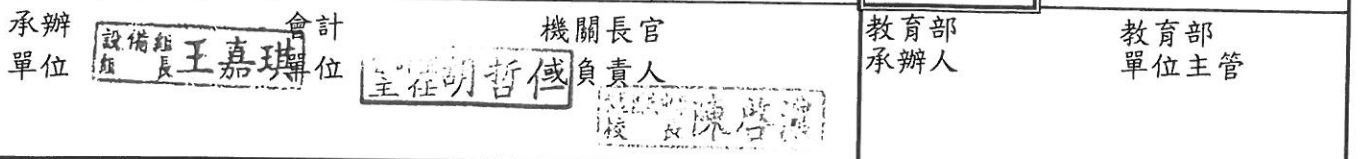 承辦
單位
設備組
組長 王嘉琪
會計
單位
主任 胡哲
機關長官
或負責人
校長 陳啓
教育部
承辦人
教育部
單位主管